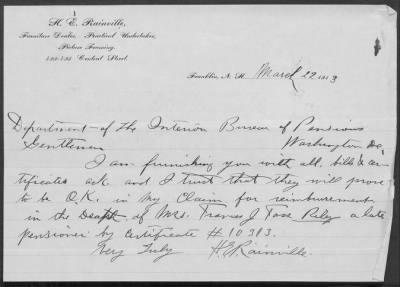 H. E. Rainville,
Furniture Dealer, Practical Undertaker,
Picture Framing,
Central Street.
Franklin, N. H. March 22 1913
Department of the Interior Bureau of Pensions
Gentlemen Washington DC.
I am furnishing you with all bills & cer-
tificates ask and I trust that they will prove
to be O.K. in my Claim for reimbursement
in the Death of Mrs. Frances J a late
pensioner by certificate # 10383.
Very Truly H.E. Rainville.